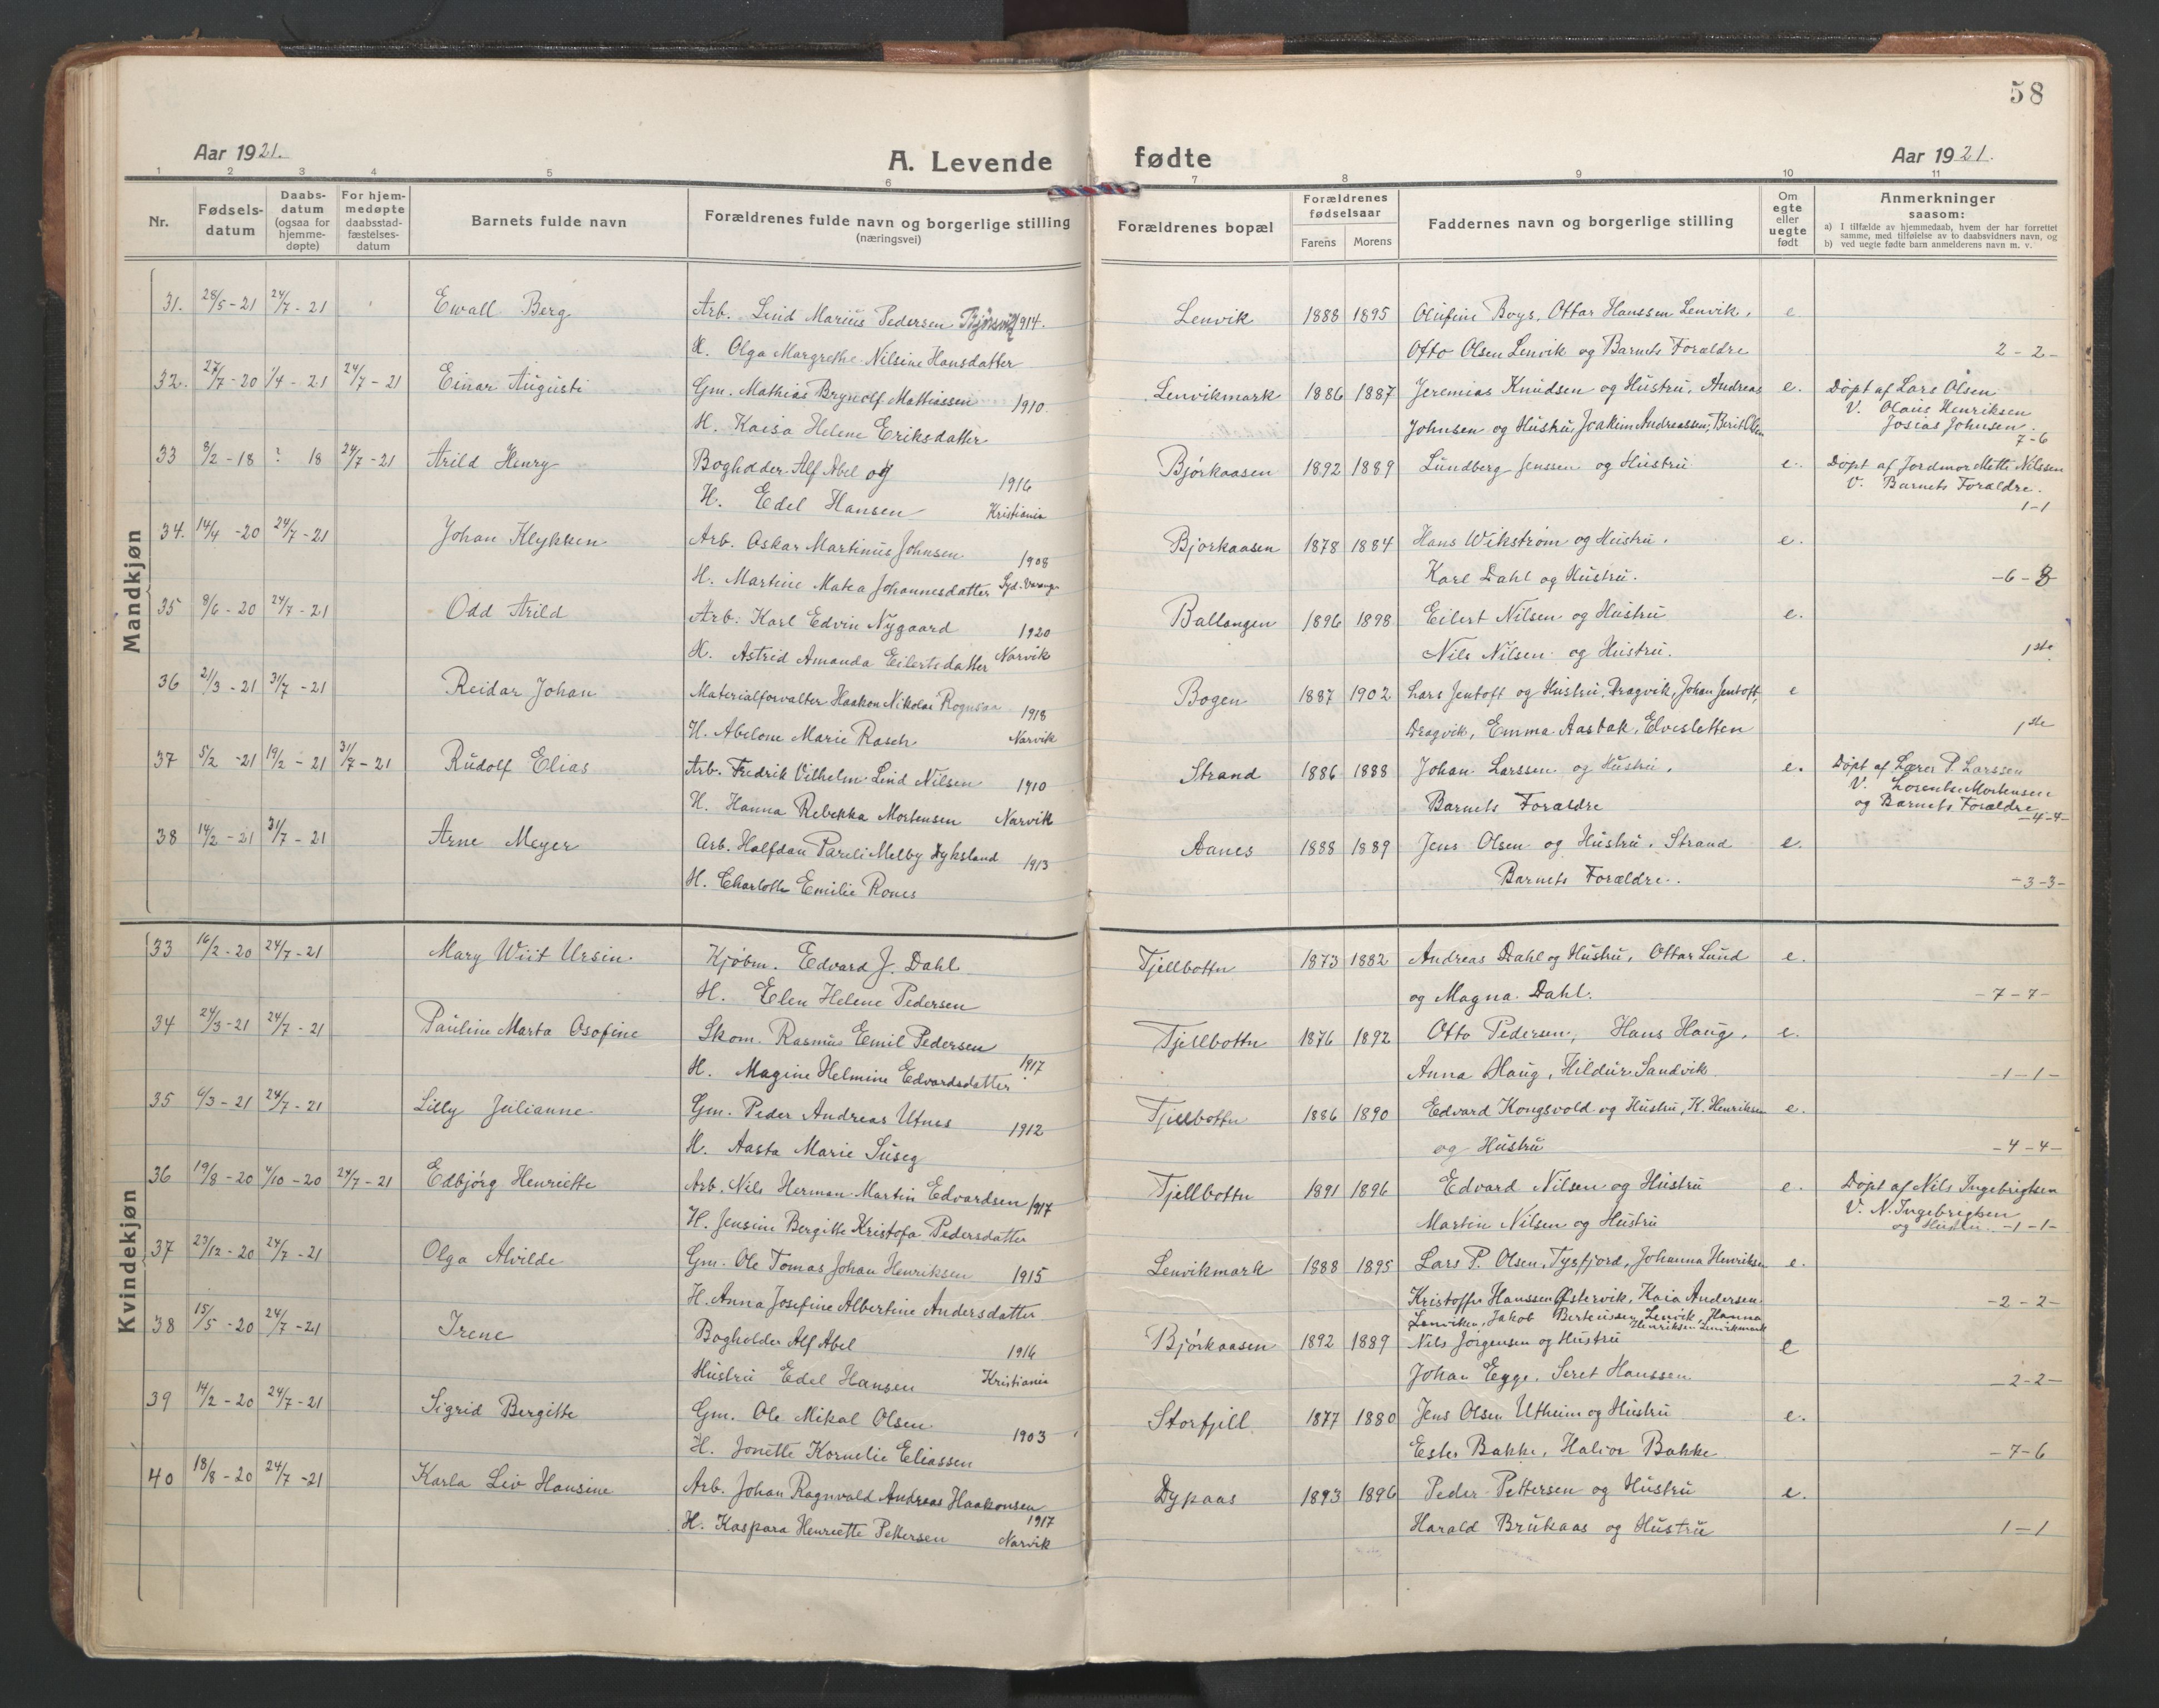 58
Aar 1921.
A. Levende fødte
Aar 1921.
1 2 3 4 5 6 7 8 9 10 11
Nr.
Fødsels-
datum
Daabs-
datum
(ogsaa for
hjemme-
døpte)
For hjem-
medøpte
daabsstad-
fæstelses-
datum
Barnets fulde navn
Forældrenes fulde navn og borgerlige stilling
(næringsvei)
Forældrenes bopæl
Forældrenes
fødselsaar
Farens Morens
Faddernes navn og borgerlige stilling
Om
egte
eller
uegte
født
Anmerkninger
saasom:
a) I tilfælde av hjemmedaab, hvem der har forrettet
samme, med tilføielse av to daabsvidners navn, og
b) ved uegte fødte barn anmelderens navn m. v.
Mandkjøn
31. 28/5-21 24/7-21 Ewall Berg Arb. Lind Marius Pedersen 1914. Lenvik 1888 1895 Olufine Boys, Ottar Hanssen Lenvik, e
H. Olga Margrethe Nilsine Hansdatter Otto Olsen Lenvik og Barnets Forældre 2-2-
32. 27/7-20 1/4-21 24/7-21 Einar Augusti Gm. Mathias Brynolf Mathiassen 1910. Lenvikmark 1886 1887 Jeremias Knudsen og Hustru, Andreas e. Døpt af Lars Olsen
H. Kaisa Helene Eriksdatter Johnsen og Hustru, Joakim Andreassen, Berit Olsen V. Olaus Henriksen
Josias Johnsen.
7-6
33 8/2-18 ? 18 24/7-21 Arild Henry Bogholder Alf Abel og 1916 Bjørkaasen 1892 1889 Lundberg Jenssen og Hustru e. Døpt af Jordmor Mette Nilssen
H. Edel Hansen Kristiania V. Barnets Forældre.
1-1
34. 14/4-20 24/7-21 Johan Klykken Arb. Oskar Martinus Johnsen 1908 Bjørkaasen 1878 1884 Hans Wikstrøm og Hustru. e.
H. Martine Matea Johannesdatter Syd-Varang. Karl Dahl og Hustru. -6-3
35 8/6-20 24/7-21 Odd Arild Arb. Karl Edvin Nygaard 1920 Ballangen 1896 1898 Eilert Nilsen og Hustru e.
H. Astrid Amanda Eilertsdatter Narvik Nils Nilsen og Hustru. 1ste
36 21/3-21 31/7-21 Reidar Johan Materialforvalter Haakon Nikolai Rognsaa 1918 Bogen 1887 1902 Lars Jentoft og Hustru, Dragvik, Johan Jentoft, e
H. Abelone Marie Rasch Narvik Dragvik, Emma Aasbak, Elvesletten 1ste
37 5/2-21 19/2-21 31/7-21 Rudolf Elias Arb. Fredrik Vilhelm Lind Nilsen 1910 Strand 1886 1888 Johan Larssen og Hustru, e. Døpt af Lærer P. Larssen
H. Hanna Rebekka Mortensen Narvik Barnets Forældre V. Lorents Mortensen
og Barnets Forældre -4-4-
38 14/2-21 31/7-21 Arne Meyer Arb. Halfdan Pareli Melby Dyksland 1913 Aanes 1888 1889 Jens Olsen og Hustru, Strand e.
H. Charlotte Emilie Rones Barnets Forældre. -3-3-
Kvindekjøn
33 16/2-20 24/7-21 Mary Wiit Ursin. Kjøbm. Edvard J. Dahl Fjellbottn 1873 1882 Andreas Dahl og Hustru, Ottar Lund e.
H. Elen Helene Pedersen og Magna Dahl. -7-7-
34 24/3-21 24/7-21 Pauline Marta Osofine Skom. Rasmus Emil Pedersen Fjellbottn 1876 1892 Otto Pedersen, Hans Haug, e.
H. Magine Helmine Edvardsdatter 1917 Anna Haug, Hildur Sandvik -1-1-
35 6/3-21 24/7-21 Lilly Julianne Gm. Peder Andreas Utnes 1912 Fjellbottn 1886 1890 Edvard Kongsvold og Hustru, K. Henriksen e.
H. Aasta Marie Suseg og Hustru -4-4-
36 19/8-20 4/10-20 24/7-21 Edbjørg Henriette Arb. Nils Herman Martin Edvardsen 1917 Fjellbottn 1891 1896 Edvard Nilsen og Hustru e. Døpt af Nils Ingebrigtsen
H. Jensine Bergitte Kristofa Pedersdatter Martin Nilsen og Hustru V. N. Ingebrigtsen
og Hustru. -1-1-
37 23/12-20 24/7-21 Olga Alvilde Gm. Ole Tomas Johan Henriksen 1915 Lenvikmark 1888 1895 Lars P. Olsen, Tysfjord, Johanna Henriksen e.
H. Anna Josefine Albertine Andersdatter Kristoffer Hanssen Østervik, Kaia Andersen -2-2-
Lenviken, Jakob Berteussen Lenvik, Hanna
Henriksen Lenvikmark
38 15/5-20 24/7-21 Irene Bogholder Alf Abel 1916 Bjørkaasen 1892 1889 Nils Jørgensen og Hustru e
Hustru Edel Hansen Kristiania Johan Egge, Seret Hanssen -2-2-
39 14/2-20 24/7-21 Sigrid Bergitte Gm. Ole Mikal Olsen 1903 Storfjell 1877 1880 Jens Olsen Utheim og Hustru e.
H. Jonette Kornelie Eliassen Ester Bakke, Halvor Bakke -7-6
40 18/8-20 24/7-21 Karla Liv Hansine Arb. Johan Ragnvald Andreas Haakonsen Dypaas 1893 1896 Peder Pettersen og Hustru e.
H. Kaspara Henriette Pettersen 1917 Narvik Harald Brukaas og Hustru 1-1